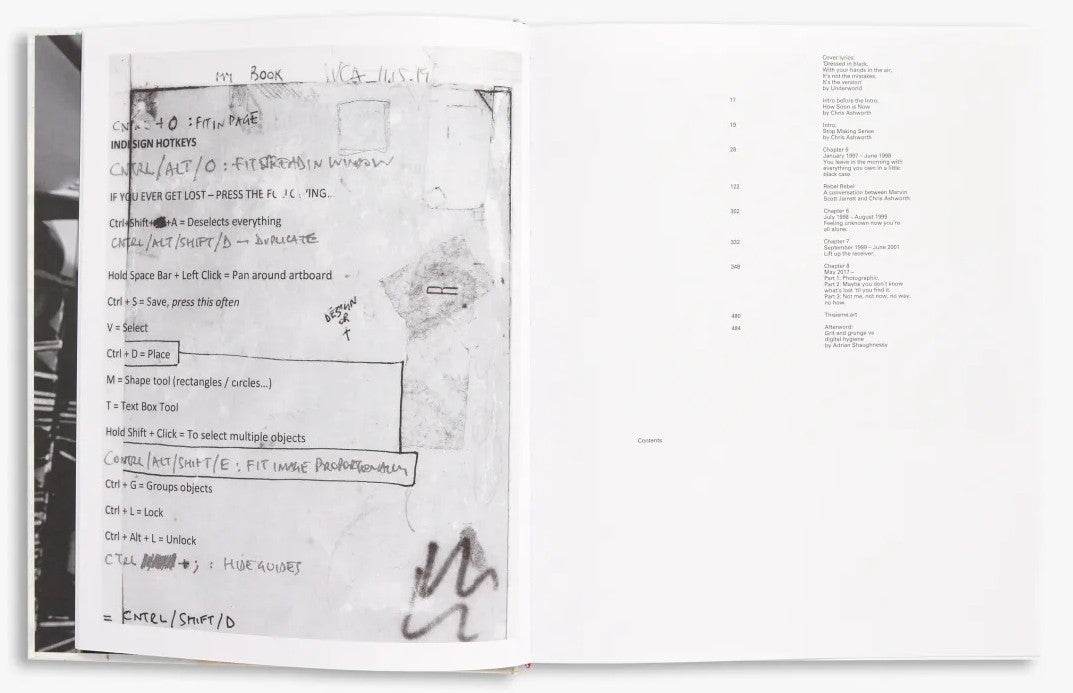 MY BOOK
CNTRL + O : FIT IN PAGE
INDESIGN HOTKEYS
CNTRL/ALT/O : FIT SPREAD IN WINDOW
IF YOU EVER GET LOST – PRESS THE
Ctrl+Shift+ +A = Deselects everything
CNTRL/ALT/SHIFT/D – DUPLICATE
Hold Space Bar + Left Click = Pan around artboard
Ctrl + S = Save, press this often
DESIGN
OR
+
V = Select
Ctrl + D = Place
M = Shape tool (rectangles / circles...)
T = Text Box Tool
Hold Shift + Click = To select multiple objects
CONTRL/ALT/SHIFT/E : FIT IMAGE PROPORTIONALLY
Ctrl + G = Groups objects
Ctrl + L = Lock
Ctrl + Alt + L = Unlock
CTRL + ; : HIDE GUIDES
= CNTRL/SHIFT/D
R
Cover lyrics:
'Dressed in black,
With your hands in the air,
It's not the mistakes,
It's the version'
by Underworld
17 Intro before the Intro:
How Soon is Now
by Chris Ashworth
19 Intro:
Stop Making Sense
by Chris Ashworth
28 Chapter 5
January 1997 – June 1998
You leave in the morning with
everything you own in a little
black case.
122 Rebel Rebel
A conversation between Marvin
Scott Jarrett and Chris Ashworth
302 Chapter 6
July 1998 – August 1999
Feeling unknown now you're
all alone.
332 Chapter 7
September 1999 – June 2001
Lift up the receiver.
349 Chapter 8
May 2017 –
Part 1: Photographic.
Part 2: Maybe you don't know
what's lost 'til you find it.
Part 3: Not me, not now, no way,
no how.
480 Thisisme.art
484 Afterword:
Grit and grunge vs
digital hygiene
by Adrian Shaughnessy
Contents